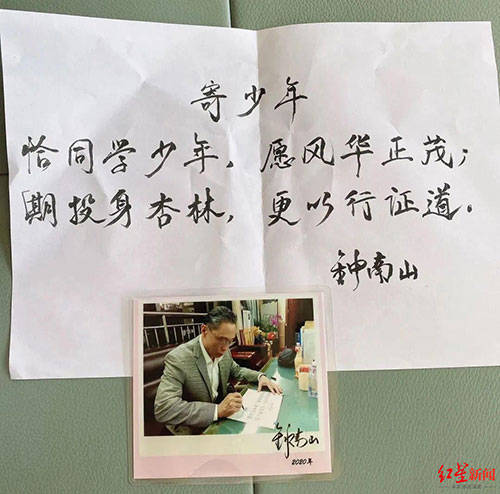 寄少年
恰同学少年，愿风华正茂；
期投身杏林，更以行证道。
钟南山
钟南山
2020年
红星新闻